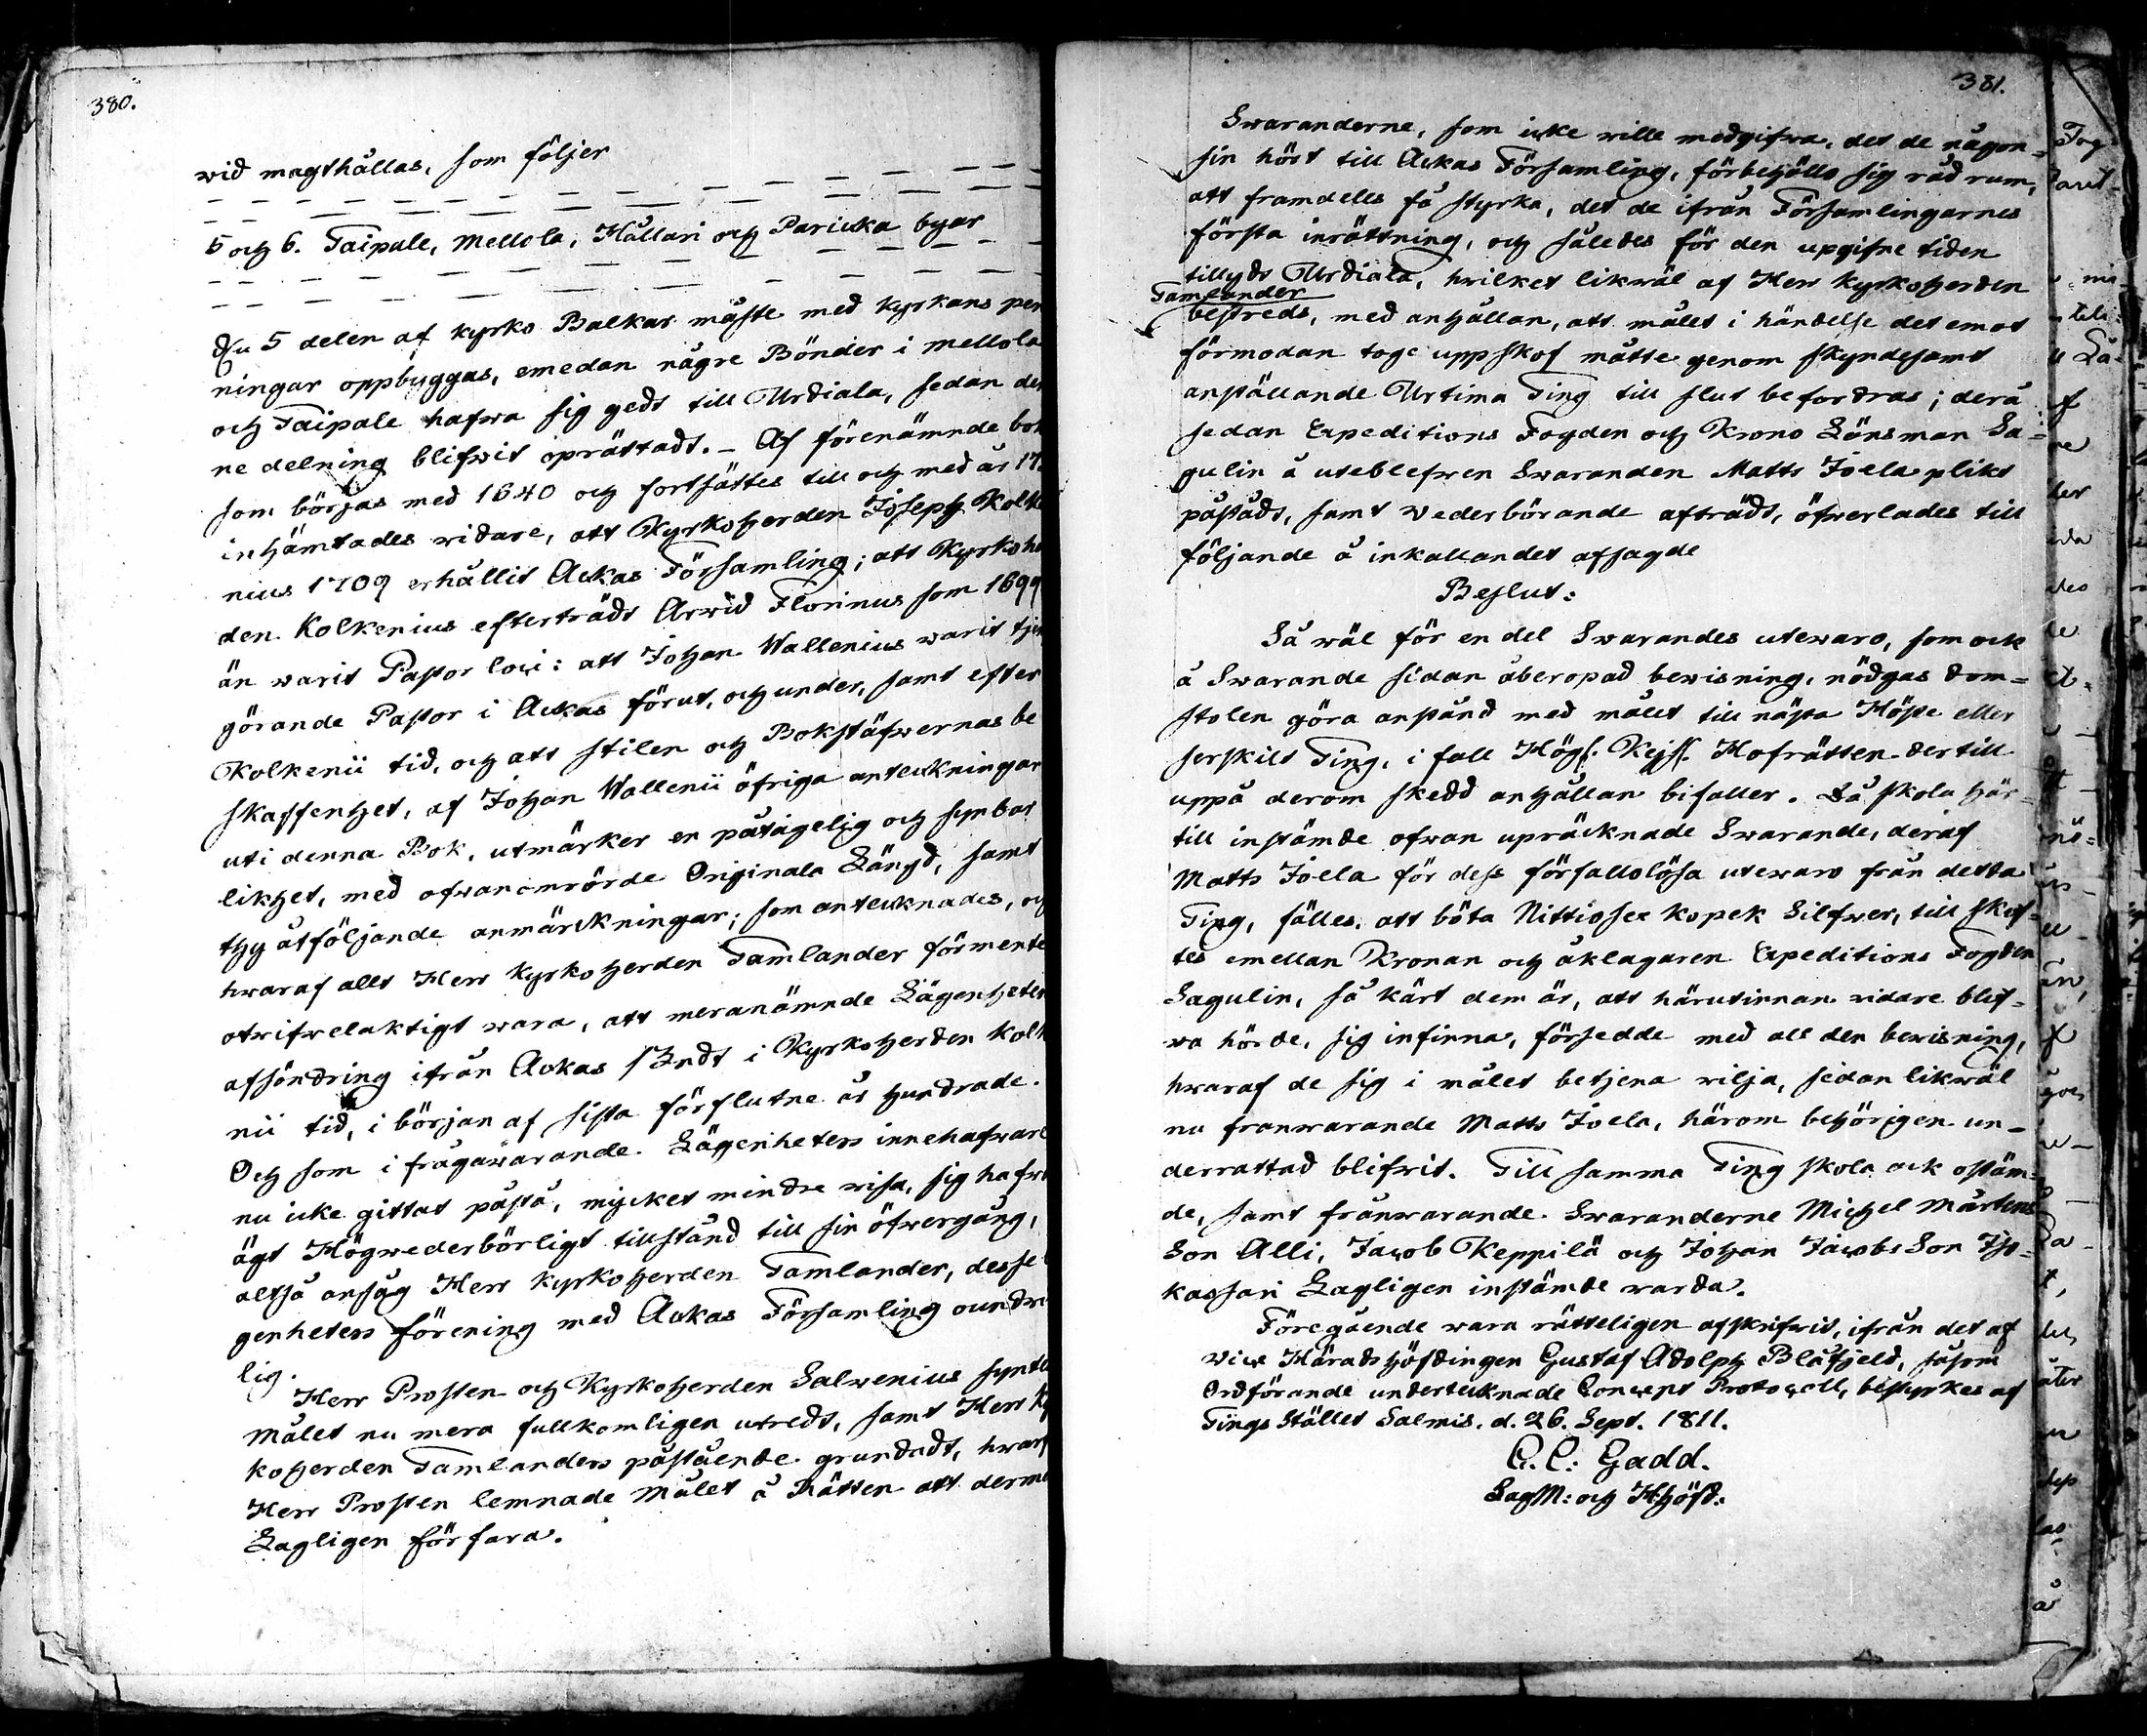 380.
wid magthållas, som följer
— — — — — — — — — —
— — — — — — — — — —
5 och 6. Taipale, Mellola, Hållari och Paricka byar
— — — — — — — — — —
— — — — — — — — — —
5 delen af kyrko Balkar måste med kyrkans pen
ningar oppbyggas, emedan någre Bönder i Mellola
och Taipale hafwa sig gedt till Urdiala, sedan den
ne delning blifwit oprättadt. – Af förenämnde bok
som börjas med 1640 och fortsättes till och med år 17
inhämtades widare, att Kyrkoherden Joseph Kolke
nius 1709 erhållit Ackas Församling; att Kyrkohe
den Kolkenius efterträdt Arwid Florinus som 1699
än warit Pastor loci: att Johan Wallenius warit tjen
görande Pastor i Ackas förut, och under, samt efter
Kolkenii tid, och att stilen och Bokstäfwernas be
skaffenhet, af Johan Wallenii öfriga anteckningar
uti denna Bok, utmärker en påtagelig och synbar
likhet, med ofwanomrörde Originala Längd, samt
thy åtföljande anmärckningar; som antecknades, och
hwaraf allt Herr Kyrkoherden Tamlander förmente
otwifwelaktigt wara, att meranämnde Lägenheter
afsöndring ifrån Ackas skedt i Kyrkoherden Kolke
nii tid, i början af sista förflutne århundrade.
Och som i frågawarande Lägenheters innehafware
nu icke gittat påstå, mycket mindre wisa, sig hafwa
ägt Högwederbörligt tillstånd till sin öfwergång,
altså ansåg Herr Kyrkoherden Tamlander, desse L
genheters förening med Ackas Församling ound
lig.
Herr Prosten och Kyrkoherden Salwenius synte
målet nu mera fullkomligen utredt, samt Herr Ky
koherden Tamlanders påstående grundadt, hwarf
Herr Prosten lemnade målet å Rätten att derm
Lagligen förfara.
381.
Swaranderne, som icke wille medgifwa, det de någon-
sin hört till Ackas Församling, förbehöllo sig råd rum,
att framdelles få styrka, det de ifrån Församlingarnes
första inrättning, och således för den upgifne tiden
tillydt Urdiala, hwilket likwäl af Herr Kyrkoherden
Tamlander
bestreds, med anhållan, att målet i händelse det emot
förmodan toge uppskof måtte genom skyndesamt
anställande Urtima Ting till slut befordras; derå
sedan Expeditions Fogden och Krono Länsman Sa=
gulin å uteblefwen Swaranden Matts Joela plikt
påstådt, samt Wederbörande afträdt, öfwerlades till
följande å inkallandet afsagde
Beslut:
Så wäl för en del Swarandes utewaro, som ock
å Swarande sidan åberopad bewisning, nödgas Dom=
stolen göra anstånd med målet till nästa Höste eller
serskilt Ting, i fall Högl. Kejsl. Hofrätten der till
uppå derom skedd anhållan bifaller. Då skola här=
till instämde ofwan upräcknade Swarande, deraf
Matts Joela för dess förfallolösa utewaro från detta
Ting, fälles att böta Nittiosex kopek Silfwer, till skif=
tes emellan Kronan och åklagaren Expeditions Fogden
Sagulin, så kärt dem är, att härutinnan widare blif=
wa hörde, sig infinna, försedde med all den bewisning,
hwaraf de sig i målet betjena wilja, sedan likwäl
nu franwarande Matts Joela, härom behörigen un-
derrattad blifwit. Till samma Ting skola ock ostäm=
de, samt frånwarande Swaranderne Michel Mårtens
Son Alli, Jacob Keppilä och Johan Jacobs Son Iso=
kassari Lagligen instämde warda.
Föregående wara rätteligen afskrifwit, ifrån det af
Wice Häradshöfdingen Gustaf Adolph Blåfjeld, såsom
Ordförande undertecknade Concept Protocoll, bestyrkes af
Tings Stället Salmis. d. 26. Sept. 1811.
C. C: Gadd.
LagM: och H:höfd.